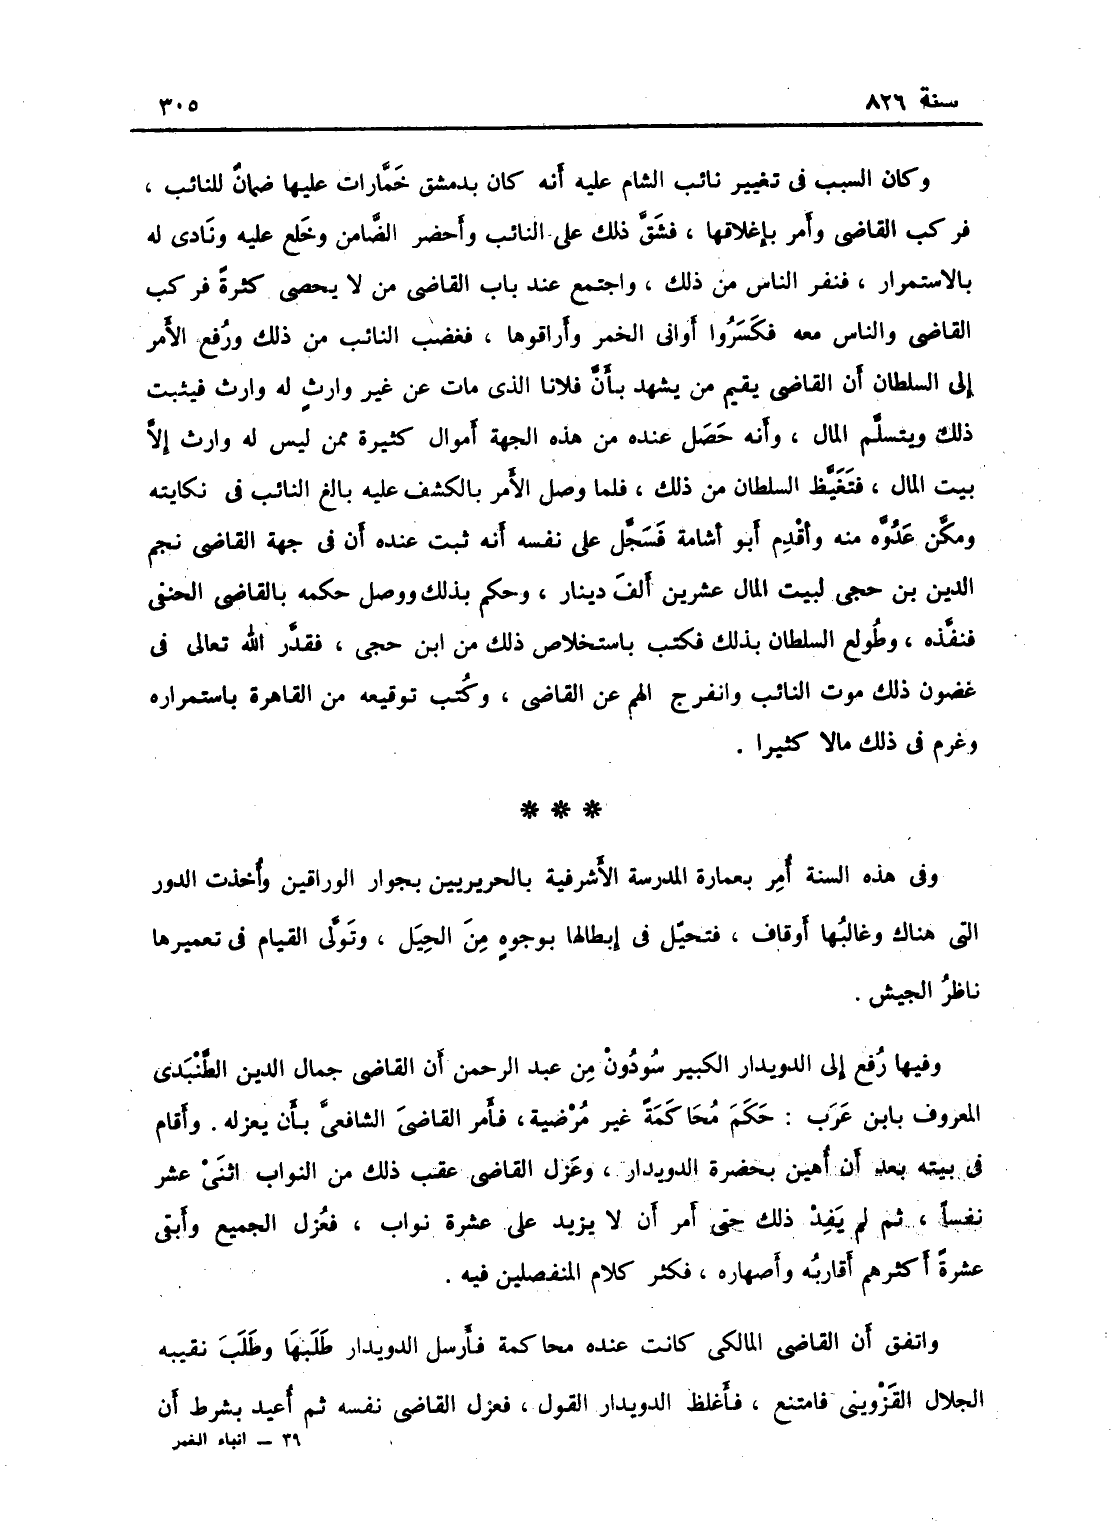 سنة ٨٢٦
٣٠٥
وكان السبب فى تغيير نائب الشام عليه أنه كان بدمشق خَمَّارات عليها ضمانٌ للنائب ،
فركب القاضى وأمر بإغلاقها ، فشَقَّ ذلك على النائب وأحضر الضَّامن وخَلع عليه ونَادى له
بالاستمرار ، فنفر الناس من ذلك ، واجتمع عند باب القاضى من لا يحصى كثرةً فركب
القاضى والناس معه فكَسَرُوا أوانى الخمر وأراقوها ، فغضب النائب من ذلك ورُفع الأمر
إلى السلطان أن القاضى يقيم من يشهد بأنَّ فلانا الذى مات عن غير وارثٍ له وارث فيثبت
ذلك ويتسلَّم المال ، وأنه حَصَل عنده من هذه الجهة أموال كثيرة ممن ليس له وارث إلاَّ
بيت المال ، فتَغَيَّظ السلطان من ذلك ، فلما وصل الأمر بالكشف عليه بالغ النائب فى نكايته
ومكَّن عَدُوَّه منه وأقْدِم أبو أشامة فَسَجَّل على نفسه أنه ثبت عنده أن فى جهة القاضى نجم
الدين بن حجى لبيت المال عشرين ألفَ دينار ، وحكم بذلك ووصل حكمه بالقاضى الحنفى
فنفَّذه ، وطُولع السلطان بذلك فكتب باستخلاص ذلك من ابن حجى ، فقدَّر الله تعالى فى
غضون ذلك موت النائب وانفرج الهم عن القاضى ، وكُتب توقيعه من القاهرة باستمراره
وغرم فى ذلك مالا كثيرا .
* * *
وفى هذه السنة أُمِر بعمارة المدرسة الأشرفية بالحريريين بجوار الوراقين وأُخذت الدور
التى هناك وغالبُها أوقاف ، فتحيّل فى إبطالها بوجوهٍ مِنَ الحِيَل ، وتَولَّى القيام فى تعميرها
ناظرُ الجيش .
وفيها رُفع إلى الدويدار الكبير سُودُونْ مِن عبد الرحمن أن القاضى جمال الدين الطَّنْبَدى
المعروف بابن عَرَب : حَكَمَ مُحَاكَمَةً غير مُرْضية ، فأمر القاضىَ الشافعىَّ بأن يعزله . وأقام
فى بيته بعد أن أُهين بحضرة الدويدار ، وعَزل القاضى عقب ذلك من النواب اثنَىْ عشر
نفساً ، ثم لم يَفِدْ ذلك حتى أمر أن لا يزيد على عشرة نواب ، فعُزل الجميع وأبقى
عشرةً أكثرهم أقاربُه وأصهاره ، فكثر كلام المنفصلين فيه .
واتفق أن القاضى المالكى كانت عنده محاكمة فأرسل الدويدار طَلَبهَا وطَلَبَ نقيبه
الجلال القَزْوينى فامتنع ، فأغلظ الدويدار القول ، فعزل القاضى نفسه ثم أُعيد بشرط أن
٣٩ – انباء الغمر